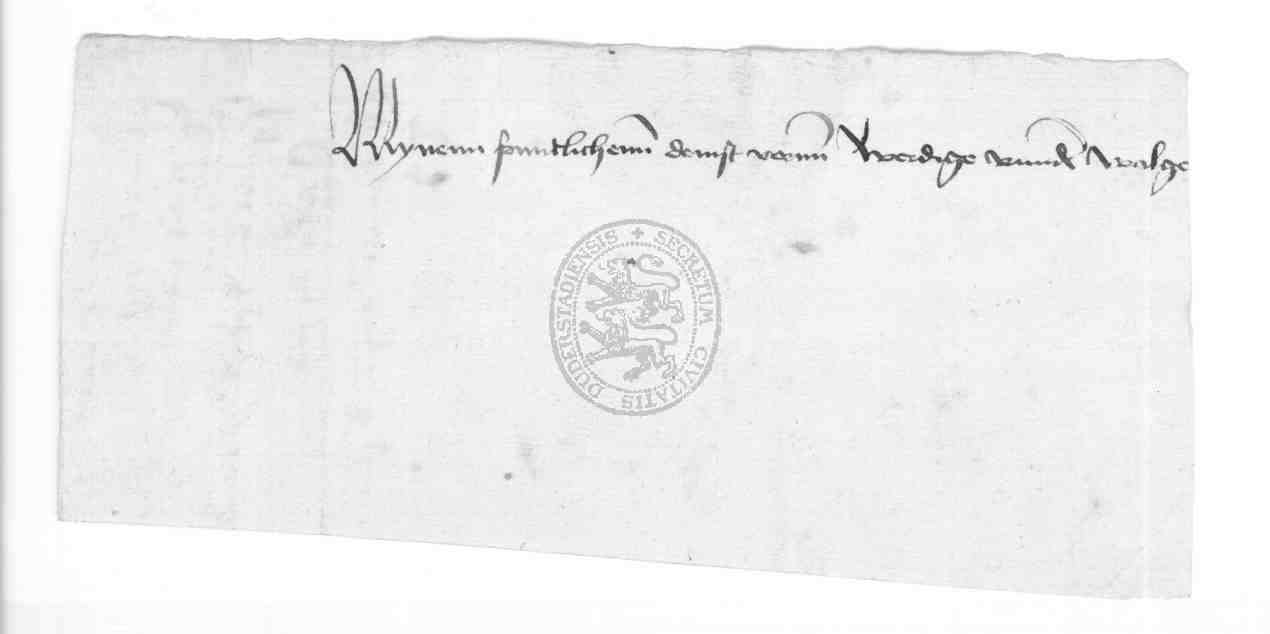 Mynenn fruntlichenn deinst vornn Werdige vnnd walge
SECRETUM CIVITATIS DUDERSTADIENSIS